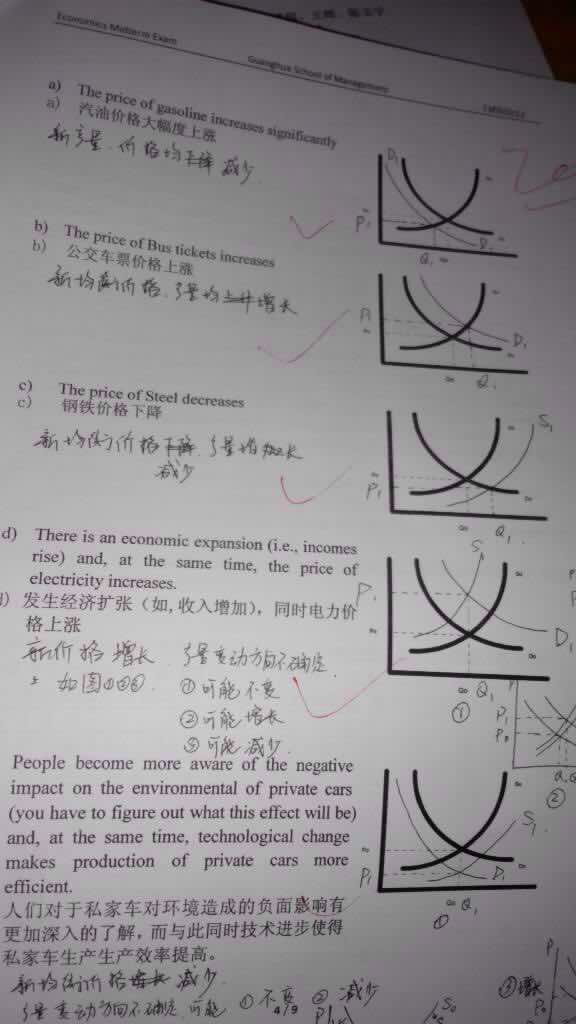 Economics Midterm Exam
Guanghua School of Management
a) The price of gasoline increases significantly
a) 汽油价格大幅度上涨
新产量、价格均 减少
D₁
P₁
D₁
Q₁
b) The price of Bus tickets increases
b) 公交车票价格上涨
新均衡价格、产量均上升增长
P₁
D₁
Q₁
c) The price of Steel decreases
c) 钢铁价格下降
新均衡价格下降、产量增长
减少
S₁
P₁
Q₁
d) There is an economic expansion (i.e., incomes
rise) and, at the same time, the price of
electricity increases.
d) 发生经济扩张（如,收入增加），同时电力价
格上涨
新价格 增长、产量变动方向不确定
如图①②③ ①可能不变
②可能增长
③可能减少
S₁
P₁
D₁
Q₁
①
P
P₁
P₀
②
People become more aware of the negative
impact on the environmental of private cars
(you have to figure out what this effect will be)
and, at the same time, technological change
makes production of private cars more
efficient.
人们对于私家车对环境造成的负面影响有
更加深入的了解，而与此同时技术进步使得
私家车生产生产效率提高。
新均衡价格增长 减少
产量变动方向不确定，可能 ①不变 ②减少 ③增长
S₁
P₁
D₁
Q₁
①
P
S₀
4/9